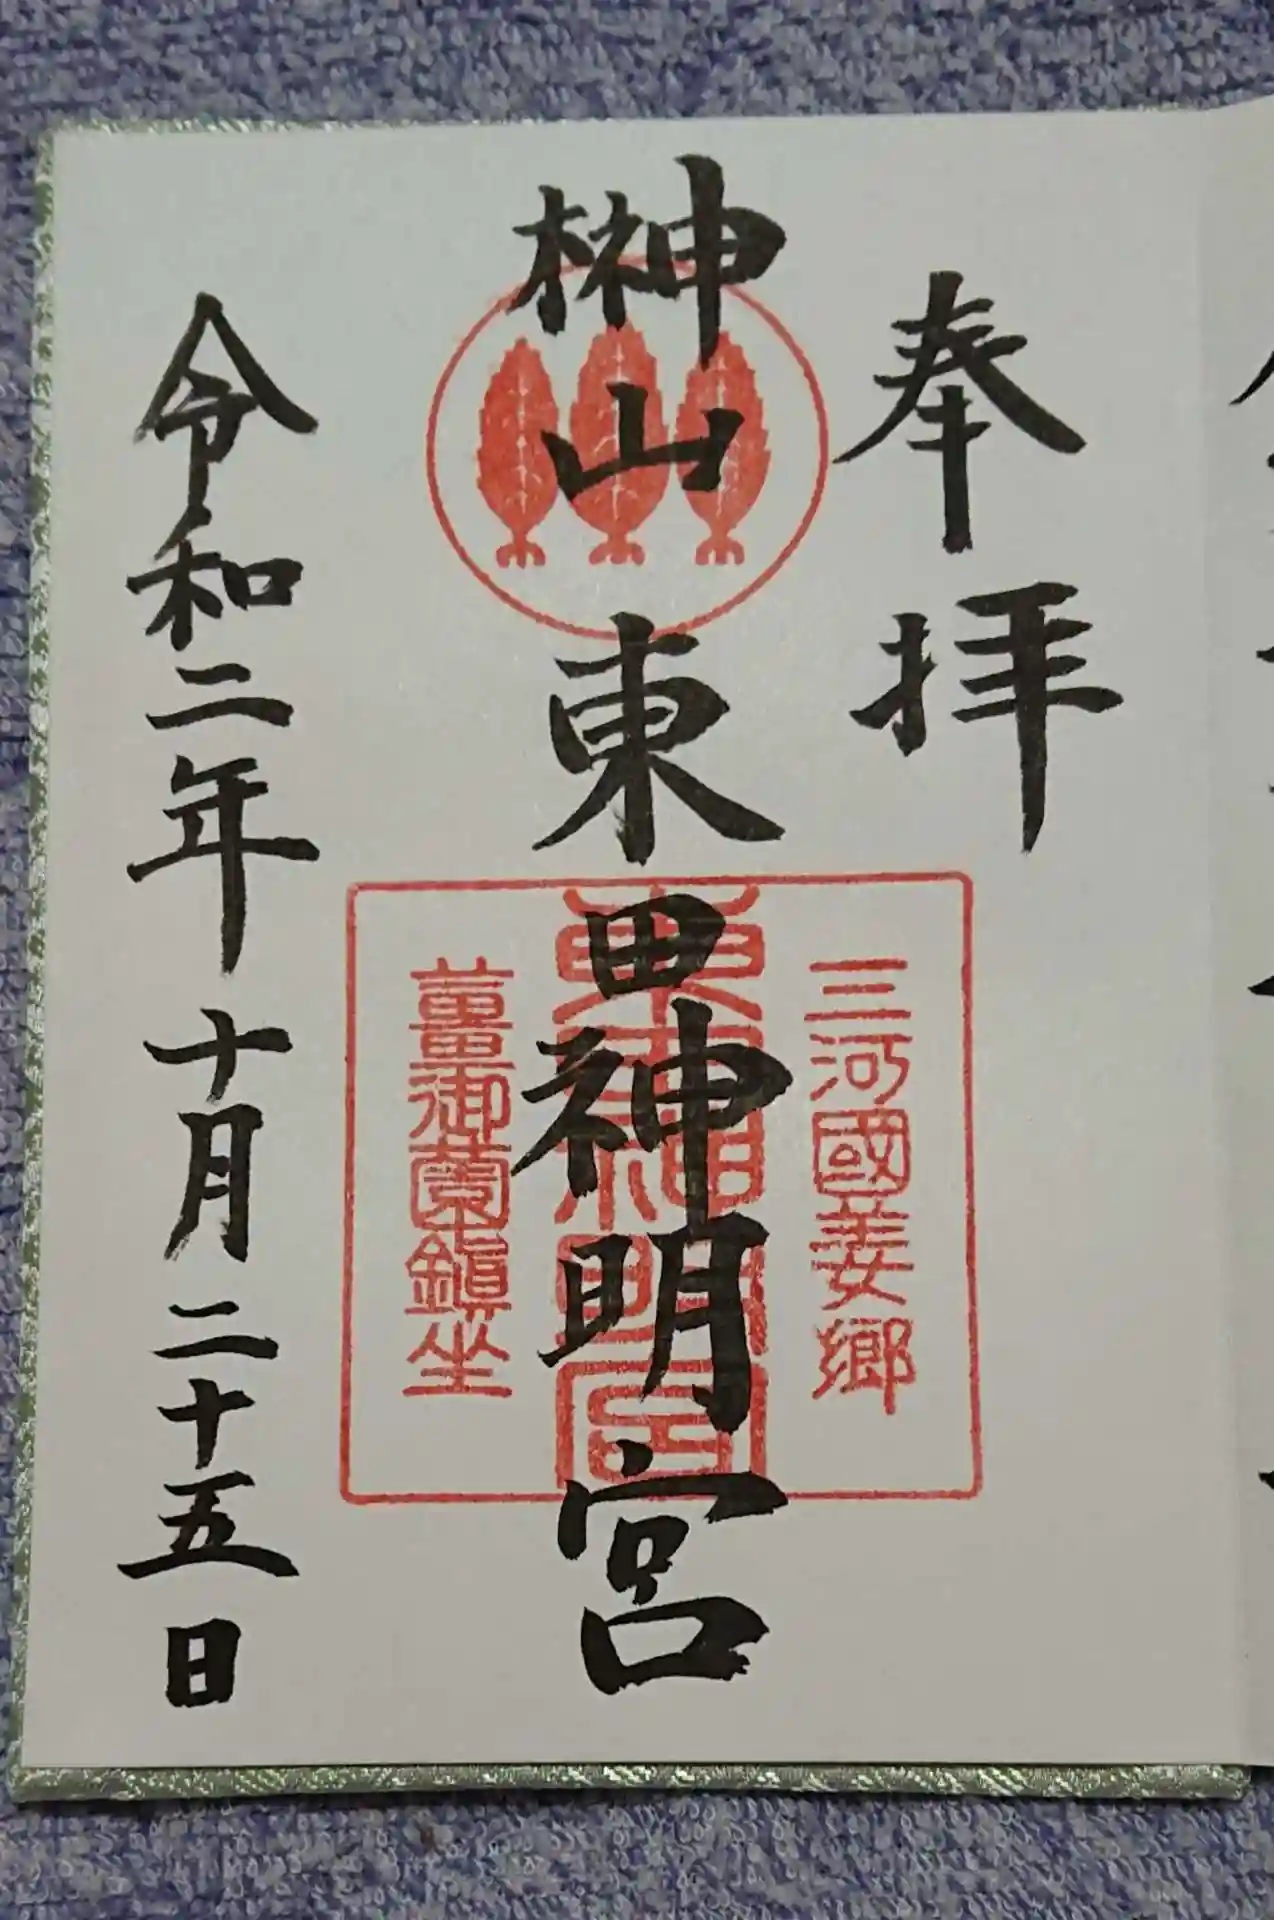 奉拝
三河國姜郷
榊山東田神明宮
東田神明宮
薑御薗鎭坐
令和二年十月二十五日